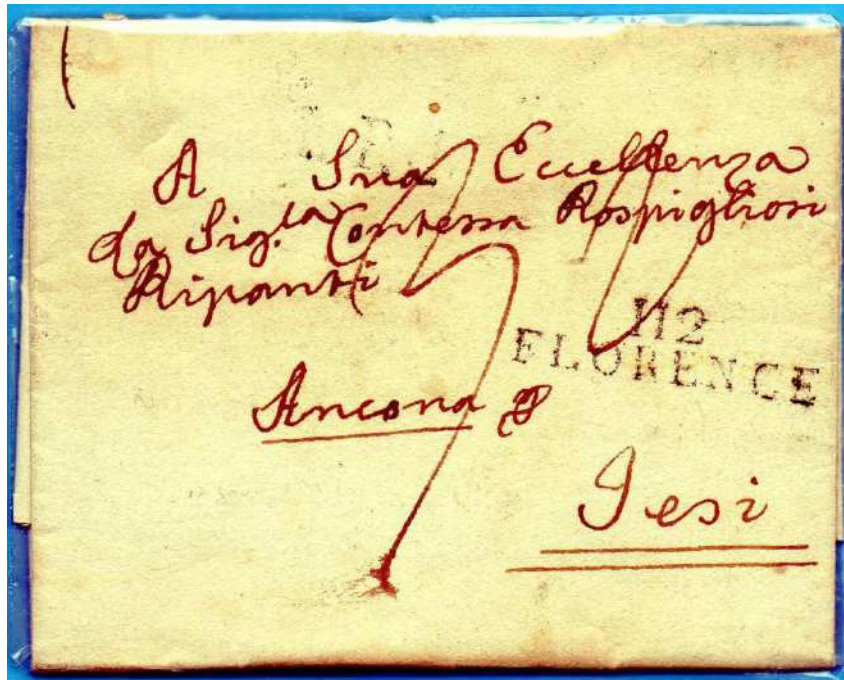 A Sua Eccellenza
La Sig.la Contessa Rospigliosi
Ripanti
112
FLORENCE
Ancona p
Jesi